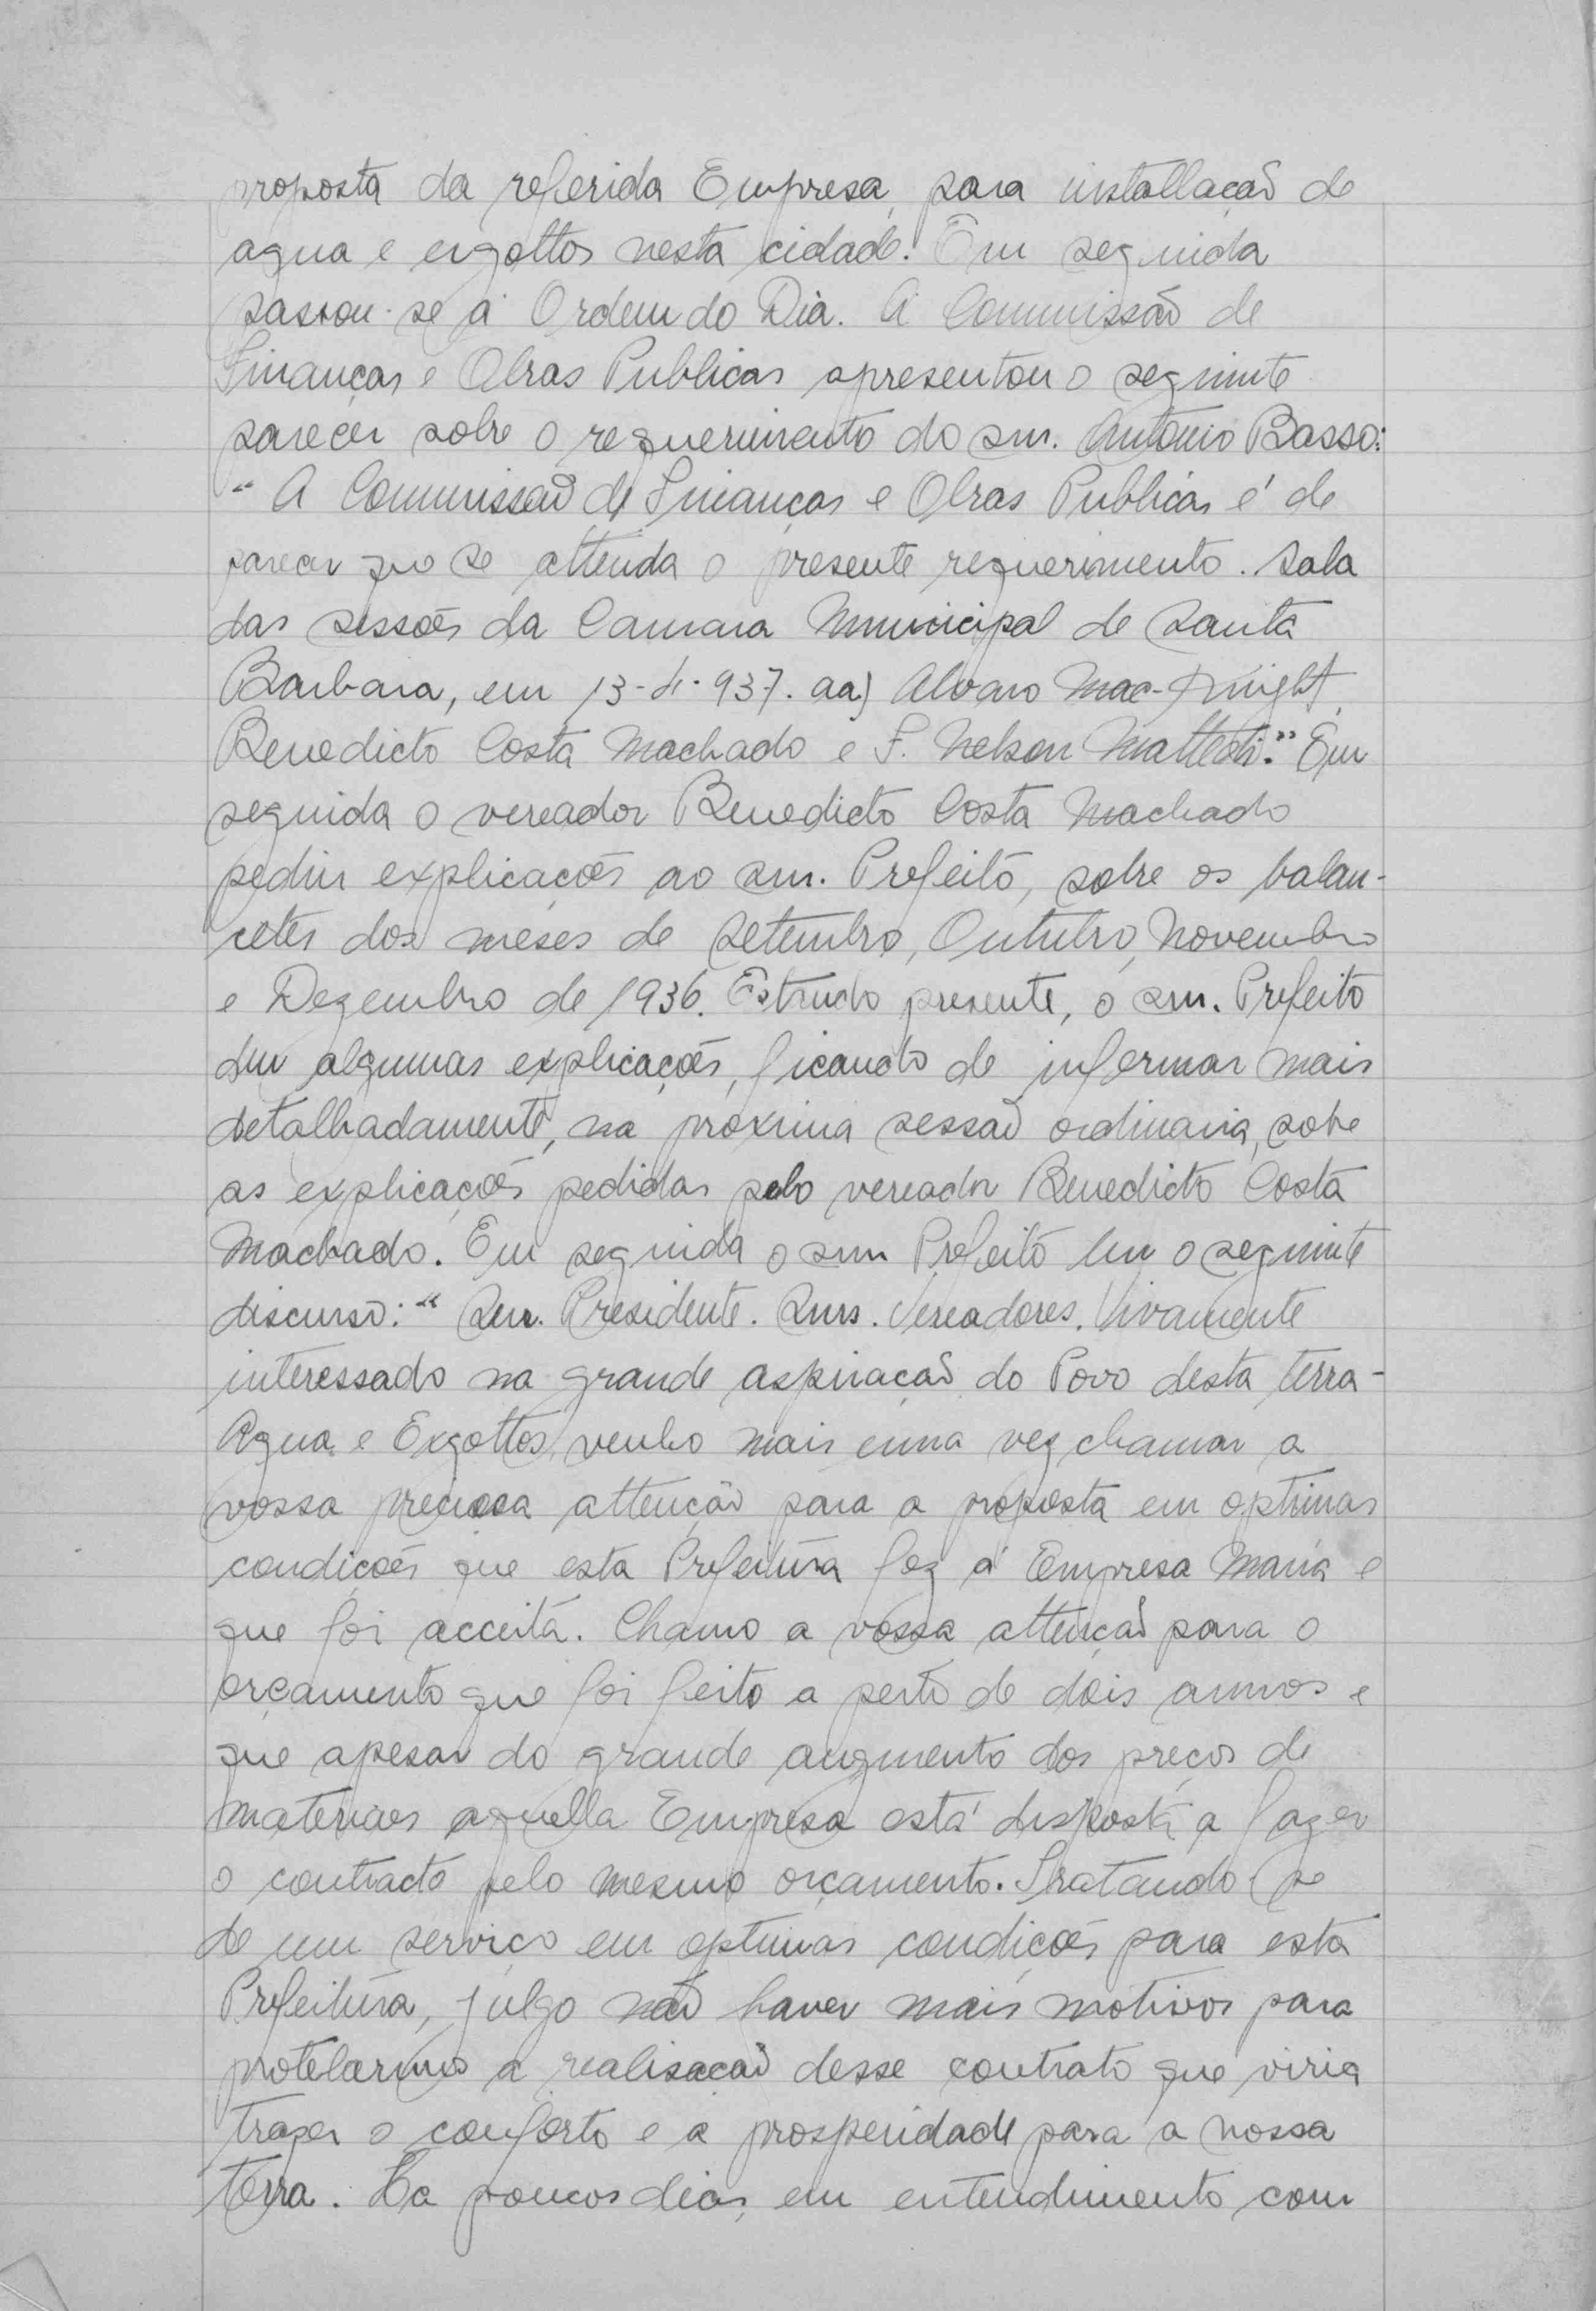 proposta da referida Empresa, para installação de
agua e exgottos nesta cidade. Em seguida
passou-se á Ordem do Dia. A Commissão de
Finanças e Obras Publicas apresentou o seguinte
parecer sobre o requerimento do snr. Antonio Basso:
"A Commissão de Finanças e Obras Publicas é de
parecer que se attenda o presente requerimento. Sala
das sessões da Camara Municipal de Santa
Barbara, em 13-4-937. aa) Alvaro Mac-Knight,
Benedicto Costa Machado e F. Nelson Mattedi." Em
seguida o vereador Benedicto Costa Machado
pediu explicações ao snr. Prefeito, sobre os balan-
cetes dos meses de Setembro, Outubro, Novembro
e Dezembro de 1936. Estando presente, o snr. Prefeito
deu algumas explicações, ficando de informar mais
detalhadamente, na proxima sessão ordinaria, sobre
as explicações pedidas pelo vereador Benedicto Costa
Machado. Em seguida o snr Prefeito leu o seguinte
discurso: "Snr. Presidente. Snrs. Vereadores. Vivamente
interessado na grande aspiração do Povo desta terra-
Agua e Exgottos, venho mais uma vez chamar a
vossa preciosa attenção para a proposta em optimas
condições que esta Prefeitura fez á Empresa Mariá e
que foi acceita. Chamo a vossa attenção para o
orçamento que foi feito a perto de dois annos e
que apesar do grande augmento dos preços de
materiaes aquella Empresa está disposta a fazer
o contracto pelo mesmo orçamento. Tratando-se
de um serviço em optimas condições para esta
Prefeitura, julgo não haver mais motivos para
protelarmos a realisação desse contrato que viria
trazer o conforto e a prosperidade para a nossa
terra. Ha poucos dias, em entendimento com